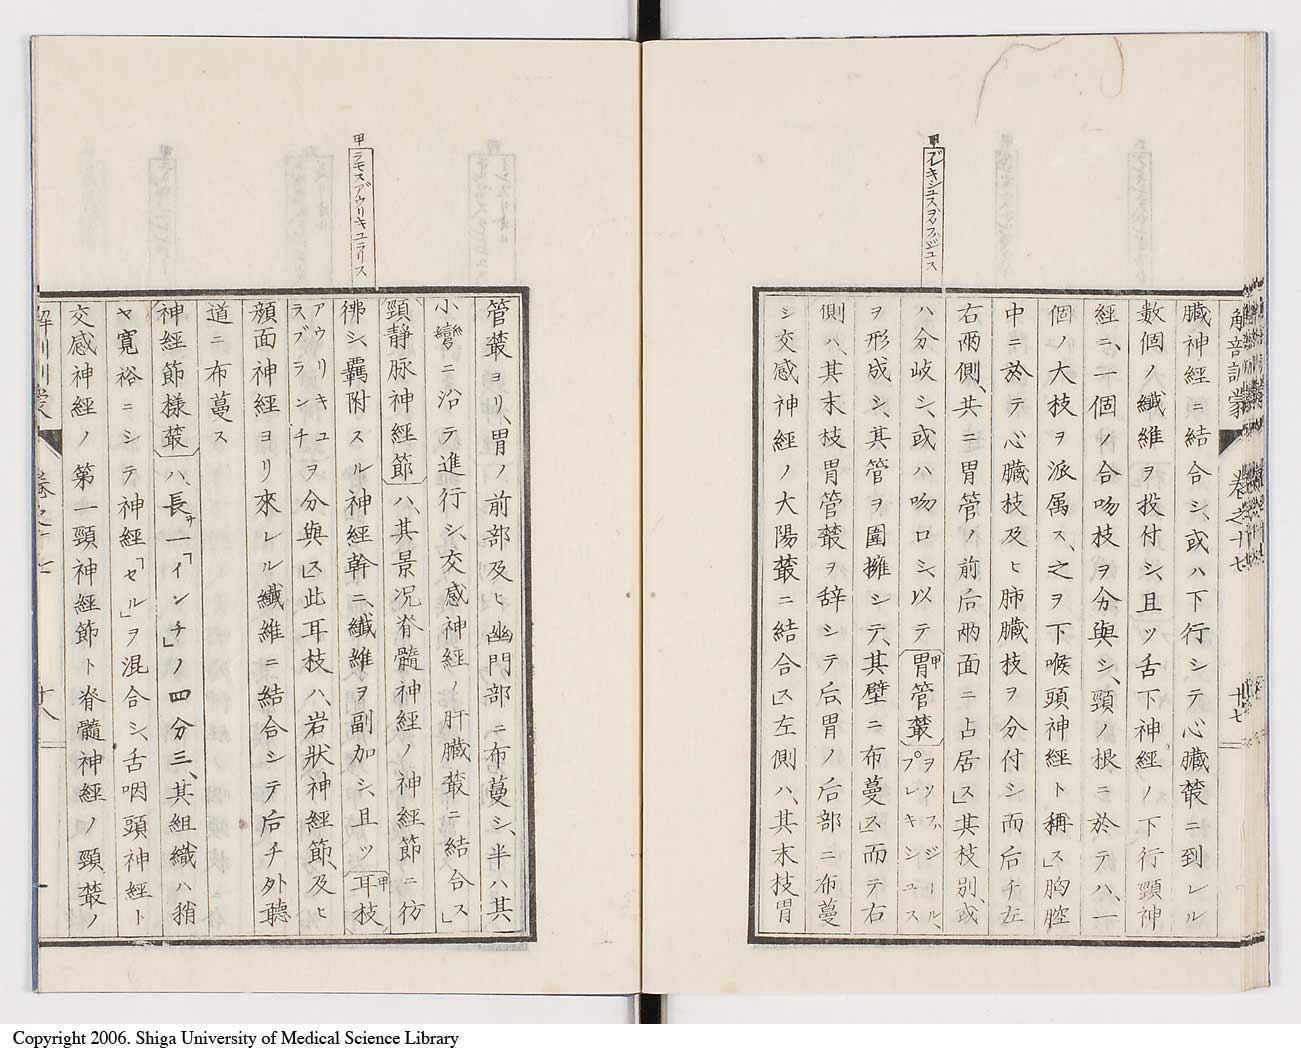 甲
プレキシュスヲソフハジュス
解剖訓蒙
卷之十七
十七
臓神經ニ結合シ、或ハ下行シテ心臓叢ニ到レル
數個ノ纎維ヲ投付シ、且ツ舌下神經ノ下行頸神
經ニ、一個ノ合吻枝ヲ分與シ、頸ノ根ニ於テハ、一
個ノ大枝ヲ派属ス、之ヲ下喉頭神經ト稱ス」胸腔
中ニ於テ心臓枝及ヒ肺臓枝ヲ分付シ而后チ左
右兩側、共ニ胃管ノ前后兩面ニ占居ス」其枝別、或
ハ分岐シ、或ハ吻口シ、以テ胃管叢プレキシュスヲソフハジール、
ヲ形成シ、其管ヲ圍擁シテ、其壁ニ布蔓ス」而テ右
側ハ、其末枝胃管叢ヲ辞シテ后、胃ノ后部ニ布蔓
シ交感神經ノ大陽叢ニ結合ス」左側ハ、其末枝胃
甲
ラモスアウリキュラリス
管叢ヨリ、胃ノ前部及ヒ幽門部ニ布蔓シ、半ハ其
小彎ニ沿テ進行シ、交感神經ノ肝臓叢ニ結合ス」
頸静脉神經節ハ、其景况脊髓神經ノ神經節ニ彷
彿シ、羈附スル神經幹ニ、纎維ヲ副加シ、且ツ耳枝
アウリキュラスブランチヲ分與ス」此耳枝ハ、岩狀神經節、及ヒ
顔面神經ヨリ來レル纎維ニ結合シテ后チ外聽
道ニ布蔓ス
神經節樣叢ハ、長サ一「インチ」ノ四分三、其組織ハ稍
ヤ寛裕ニシテ神經「セル」ヲ混合シ、舌咽頭神經ト
交感神經ノ第一頸神經節ト脊髓神經ノ頸叢ノ
Copyright 2006. Shiga University of Medical Science Library